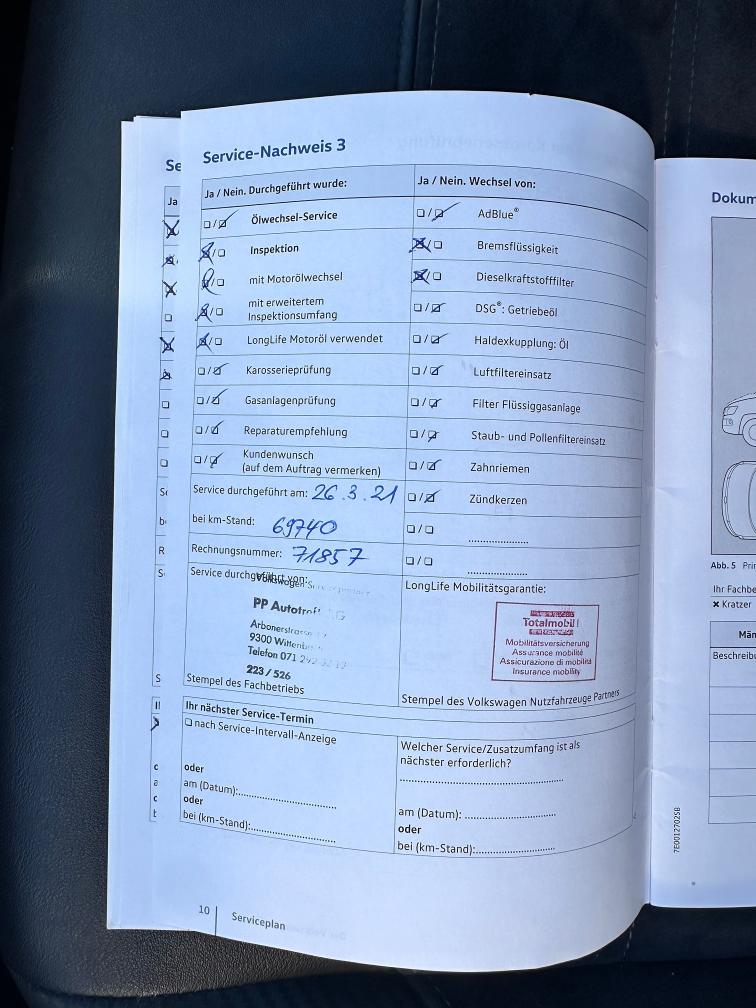 Service-Nachweis 3
Ja / Nein. Durchgeführt wurde:
Ölwechsel-Service
Inspektion
mit Motorölwechsel
mit erweitertem
Inspektionsumfang
LongLife Motoröl verwendet
Karosserieprüfung
Gasanlagenprüfung
Reparaturempfehlung
Kundenwunsch
(auf dem Auftrag vermerken)
Service durchgeführt am: 26.3.21
bei km-Stand: 69740
Rechnungsnummer: 71857
Ja / Nein. Wechsel von:
AdBlue®
Bremsflüssigkeit
Dieselkraftstofffilter
DSG®: Getriebeöl
Haldexkupplung: Öl
Luftfiltereinsatz
Filter Flüssiggasanlage
Staub- und Pollenfiltereinsatz
Zahnriemen
Zündkerzen
Service durchgeführt von:
Volkswagen
PP Autotreff AG
9300
Telefon 071
223 / 526
Stempel des Fachbetriebs
LongLife Mobilitätsgarantie:
Totalmobil!
Mobilitätsversicherung
Assurance mobilité
Assicurazione di mobilità
Insurance mobility
Stempel des Volkswagen Nutzfahrzeuge Partners
Ihr nächster Service-Termin
nach Service-Intervall-Anzeige
oder
am (Datum):
oder
bei (km-Stand):
Welcher Service/Zusatzumfang ist als
nächster erforderlich?
am (Datum):
oder
bei (km-Stand):
10 Serviceplan
Dokum
Abb. 5 Prin
Ihr Fachbe
Kratzer
Män
Beschreibu
7E0012702SB